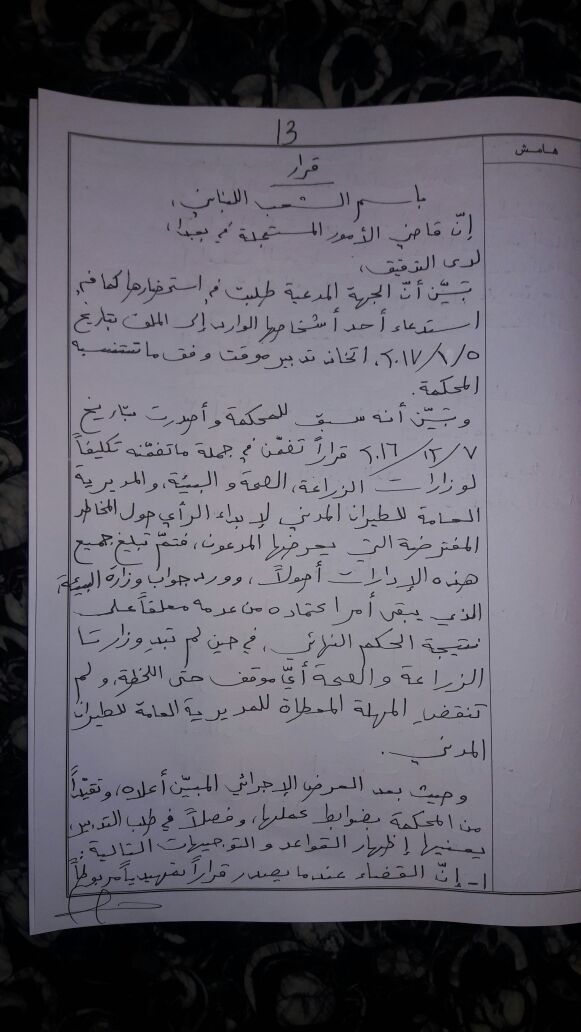 13
هامش
قرار
باسم الشعب اللبناني،
إنّ قاضي الأمور المستعجلة في بعبدا،
لدى التدقيق،
تبيّن أنّ الجهة المدعية طلبت في استحضارها كما في
استدعاء أحد أشخاصها الوارد إلى الملف بتاريخ
٢٠١٧/١/٥، اتخاذ تدبير موقت وفق ما تستنسبه
المحكمة.
وتبيّن أنه سبق للمحكمة وأصدرت بتاريخ
٢٠١٦/١٢/٧ قراراً تضمّن في جملة ما تضمّنه تكليفاً
لوزارات الزراعة، الصحة والبيئة، والمديرية
العامة للطيران المدني لإبداء الرأي حول المخاطر
المفترضة التي يعرضها المدعون، فتمّ تبليغ جميع
هذه الإدارات أصولاً، وورد جواب وزارة البيئة
الذي يبقى أمر اعتماده من عدمه معلقاً على
نتيجة الحكم النهائي، في حين لم تبدِ وزارتا
الزراعة والصحة أيّ موقف حتى اللحظة، ولم
تنقضِ المهلة المعطاة للمديرية العامة للطيران
المدني.
وحيث بعد العرض الإجرائي المبيّن أعلاه، وتقيّداً
من المحكمة بضوابط عملها، وفصلاً في طلب التدبير،
يعنيها إظهار القواعد والتوجيهات التالية:
١- إنّ القضاء عندما يصدر قراراً تمهيدياً مربوطاً